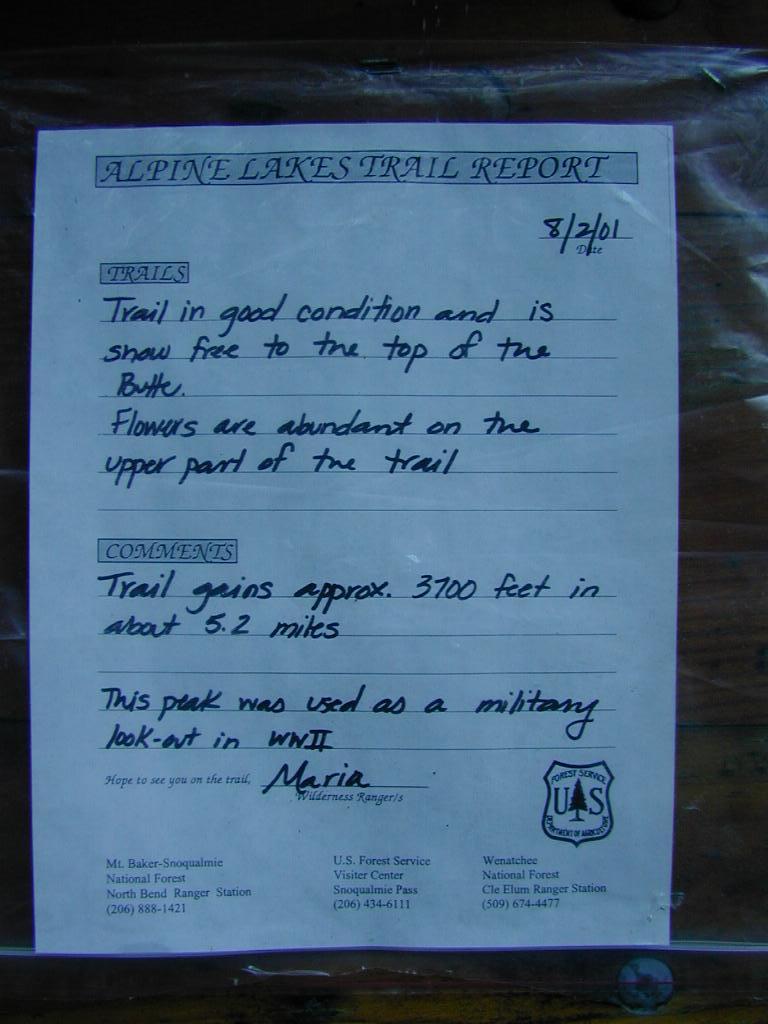 ALPINE LAKES TRAIL REPORT
8/2/01
Date
TRAILS
Trail in good condition and is
snow free to the top of the
Butte.
Flowers are abundant on the
upper part of the trail
COMMENTS
Trail gains approx. 3700 feet in
about 5.2 miles
This peak was used as a military
look-out in WWII
Hope to see you on the trail, Maria
Wilderness Ranger/s
FOREST SERVICE
U S
DEPARTMENT OF AGRICULTURE
Mt. Baker-Snoqualmie
National Forest
North Bend Ranger Station
(206) 888-1421
U.S. Forest Service
Visiter Center
Snoqualmie Pass
(206) 434-6111
Wenatchee
National Forest
Cle Elum Ranger Station
(509) 674-4477